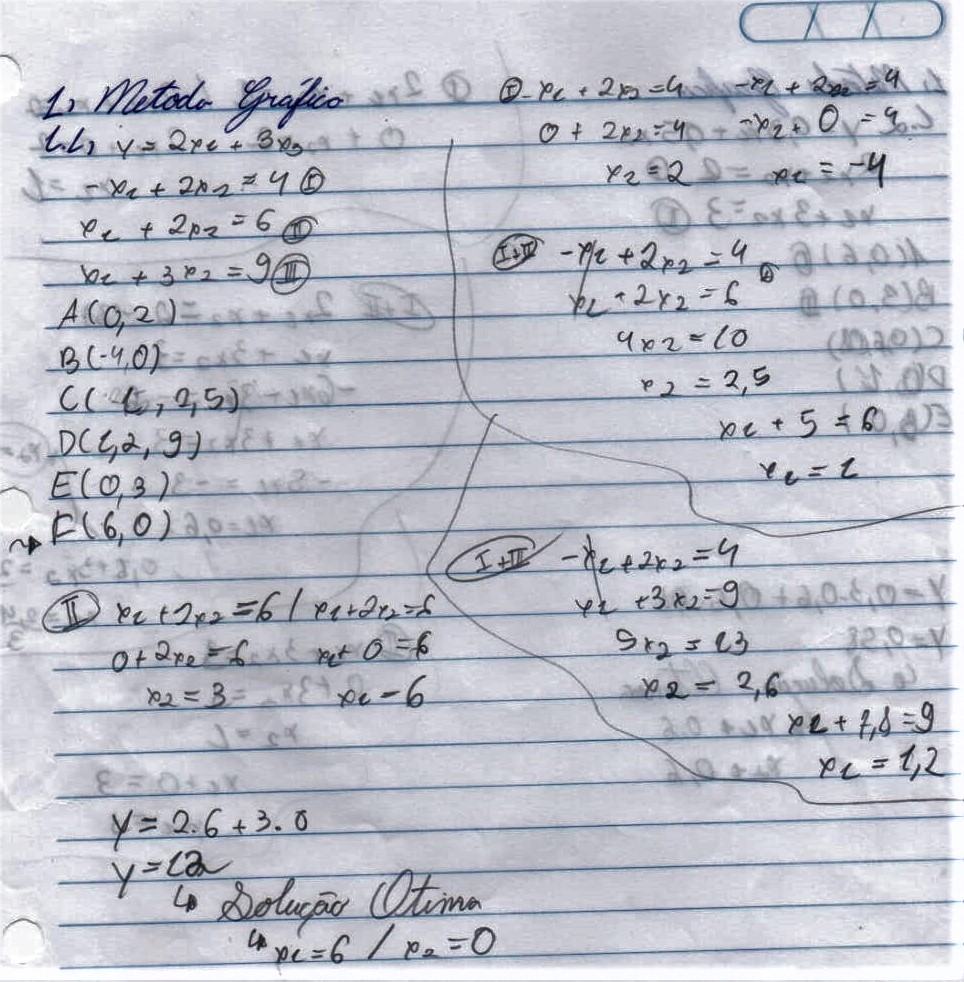 1. Metodo Gráfico
1.1. y = 2x1 + 3x2
-x1 + 2x2 = 4 (I)
x1 + 2x2 = 6 (II)
x1 + 3x2 = 9 (III)
A(0,2)
B(-4,0)
C(1, 2,5)
D(1,2, 9)
E(0,3)
F(6,0)
(II) x1 + 2x2 = 6 / x1 + 2x2 = 6
0 + 2x2 = 6 x1 + 0 = 6
x2 = 3 x1 = 6
y = 2.6 + 3.0
y = 12
↳ Solução Otima
↳ x1 = 6 / x2 = 0
(I) -x1 + 2x2 = 4 -x1 + 2x2 = 4
0 + 2x2 = 4 -x1 + 0 = 4
x2 = 2 x1 = -4
(I+II) -x1 + 2x2 = 4
x1 + 2x2 = 6
4x2 = 10
x2 = 2,5
x1 + 5 = 6
x1 = 1
(I+III) -x1 + 2x2 = 4
x1 + 3x2 = 9
5x2 = 13
x2 = 2,6
x1 + 7,8 = 9
x1 = 1,2